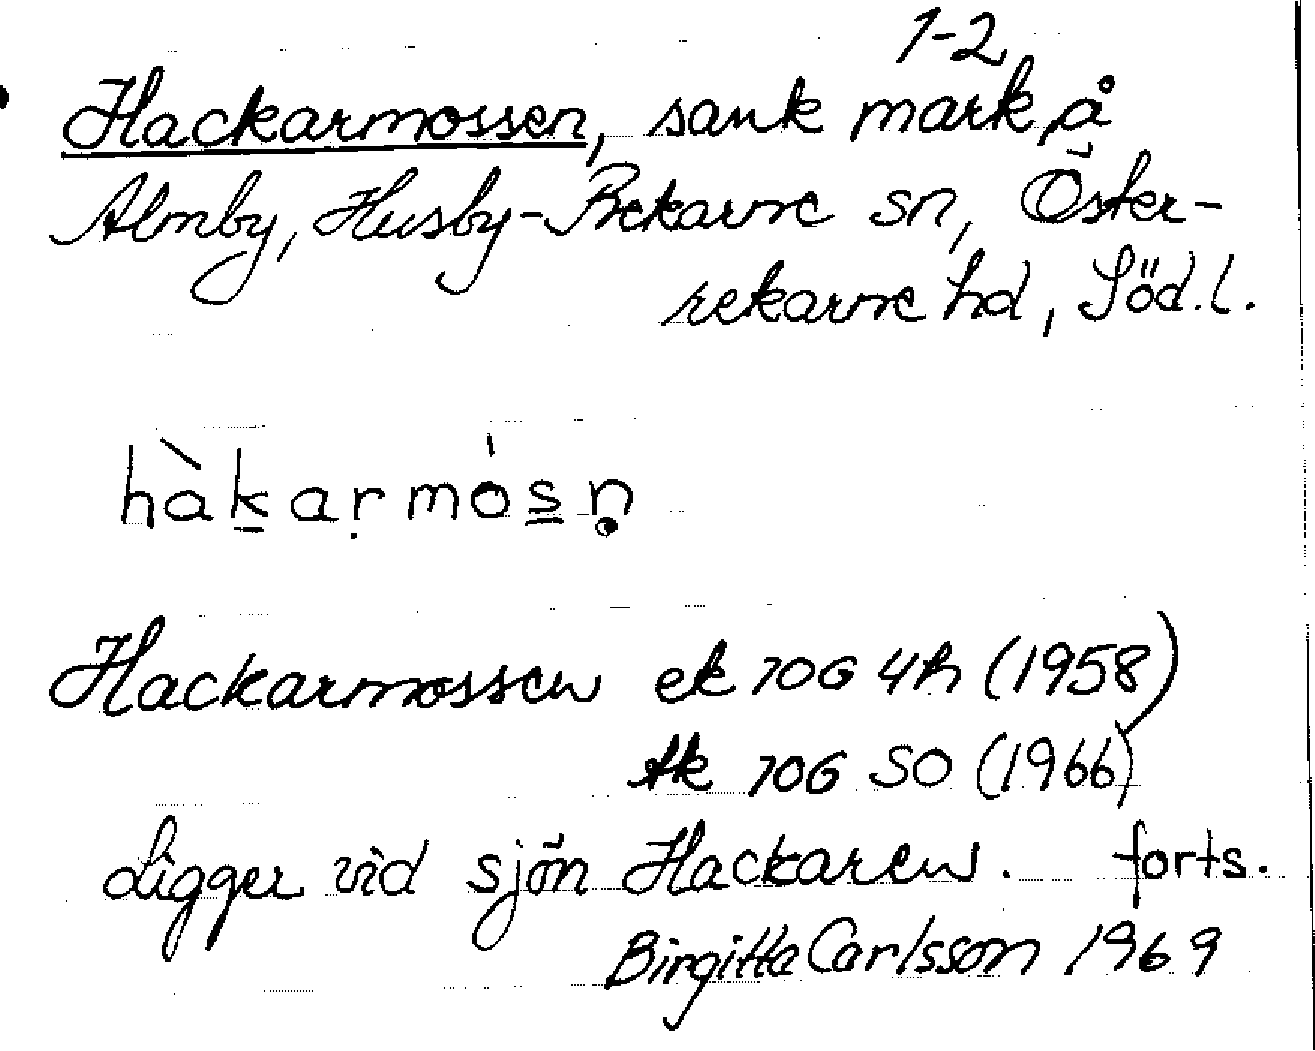 1-2
Hackarmossen, sank mark på
Almby, Husby-Rekarne sn, Öster-
rekarne hd, Söd.l.
hàk̠aṛmós̲n̥
Hackarmossen ek 10G 4h (1958)
tk 10G SO (1966)
Ligger vid sjön Hackaren. forts.
Birgitta Carlsson 1969